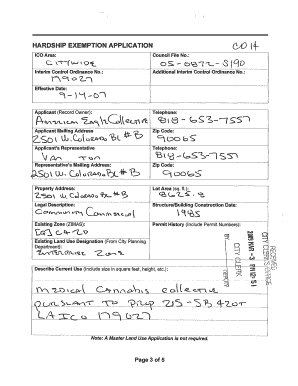 CD 14
HARDSHIP EXEMPTION APPLICATION
ICO Area: Council File No.:
CITYWIDE 05-0872-S190
Interim Control Ordinance No.: Additional Interim Control Ordinance No.:
179027
Effective Date:
9-14-07
Applicant (Record Owner): Telephone:
American Eagle Collective 818-653-7551
Applicant Mailing Address Zip Code:
2501 W. Colorado Bl # B 90065
Applicant's Representative Telephone:
818-653-7551
Representative's Mailing Address Zip Code:
2501 W. Colorado Bl # B 90065
Property Address: Lot Area (sq. ft.):
2501 W. Colorado Bl # B 8625.8
Legal Description: Structure/Building Construction Date:
Community Commercial 1985
Existing Zone (ZIMAS): Permit History (Include Permit Numbers):
[Q] C4-2D
Existing Land Use Designation (From City Planning
Department):
Enterprise Zone
RECEIVED
CITY CLERK'S OFFICE
CITY CLERK
BY
DEPUTY
Describe Current Use (Include size in square feet, height, etc.):
Medical Cannabis collective
pursuant to Prop 215 - SB 420
LA ICO 179027
Note: A Master Land Use Application is not required.
Page 3 of 5